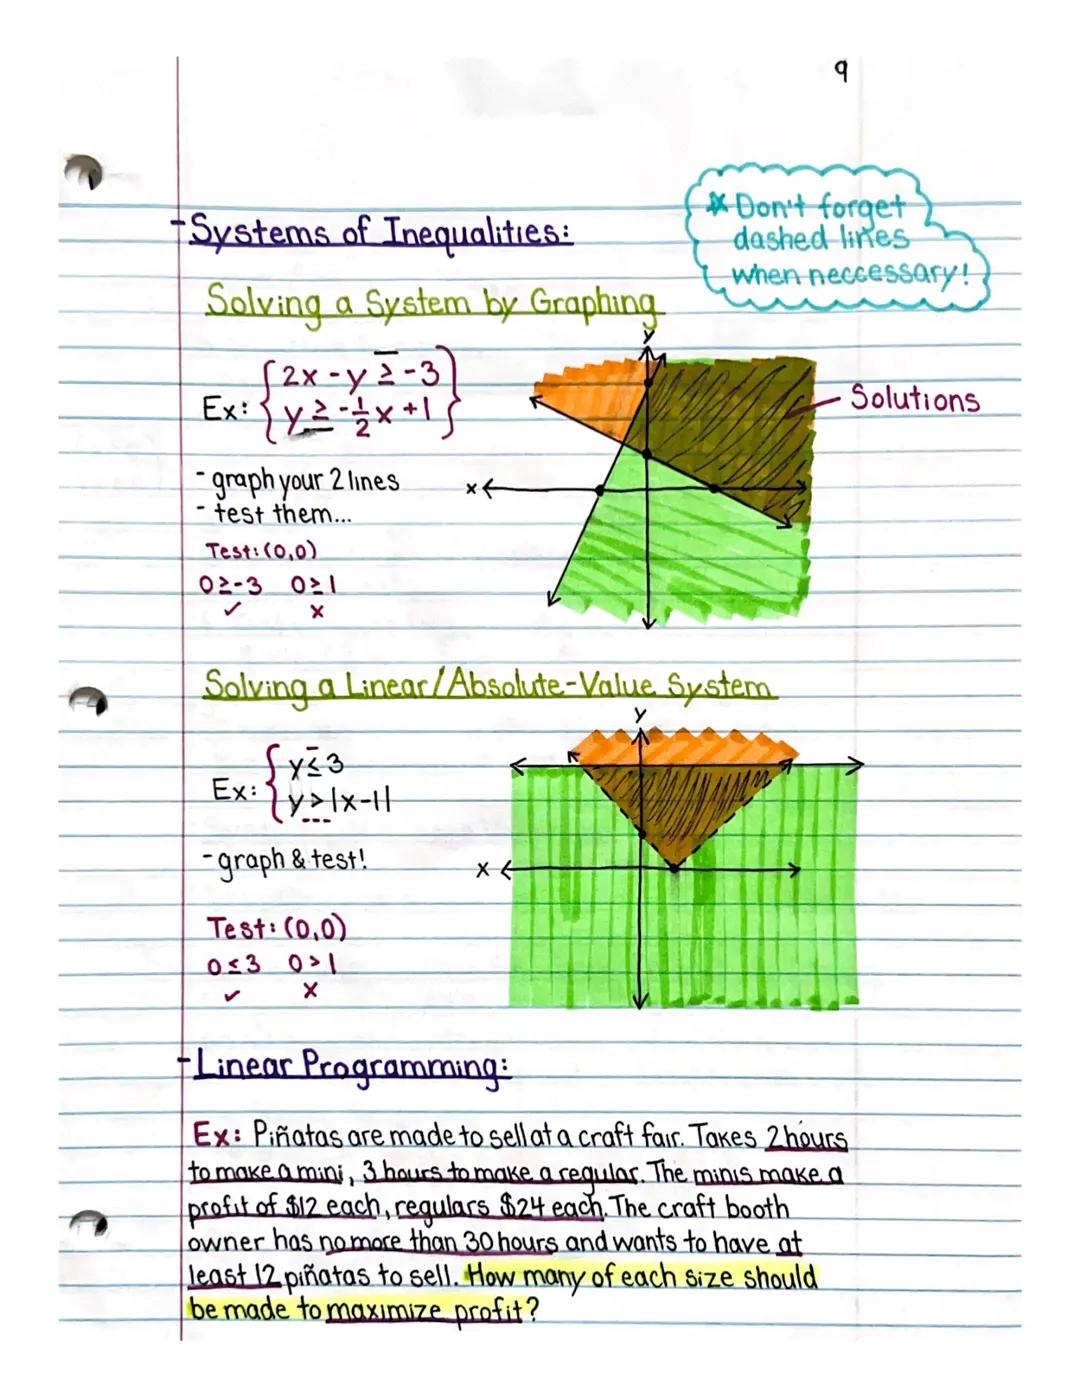 9
-Systems of Inequalities:
* Don't forget
dashed lines
when neccessary!
Solving a System by Graphing
Ex: { 2x - y ≥ -3
y ≥ -1/2 x + 1 }
y
x
Solutions
- graph your 2 lines
- test them...
Test: (0,0)
0≥-3 0≥1
✓ x
Solving a Linear/Absolute-Value System
y
Ex: { y ≤ 3
y > |x-1|
- graph & test!
x
Test: (0,0)
0≤3 0>1
✓ x
-Linear Programming:
Ex: Piñatas are made to sell at a craft fair. Takes 2 hours
to make a mini, 3 hours to make a regular. The minis make a
profit of $12 each, regulars $24 each. The craft booth
owner has no more than 30 hours and wants to have at
least 12 piñatas to sell. How many of each size should
be made to maximize profit?